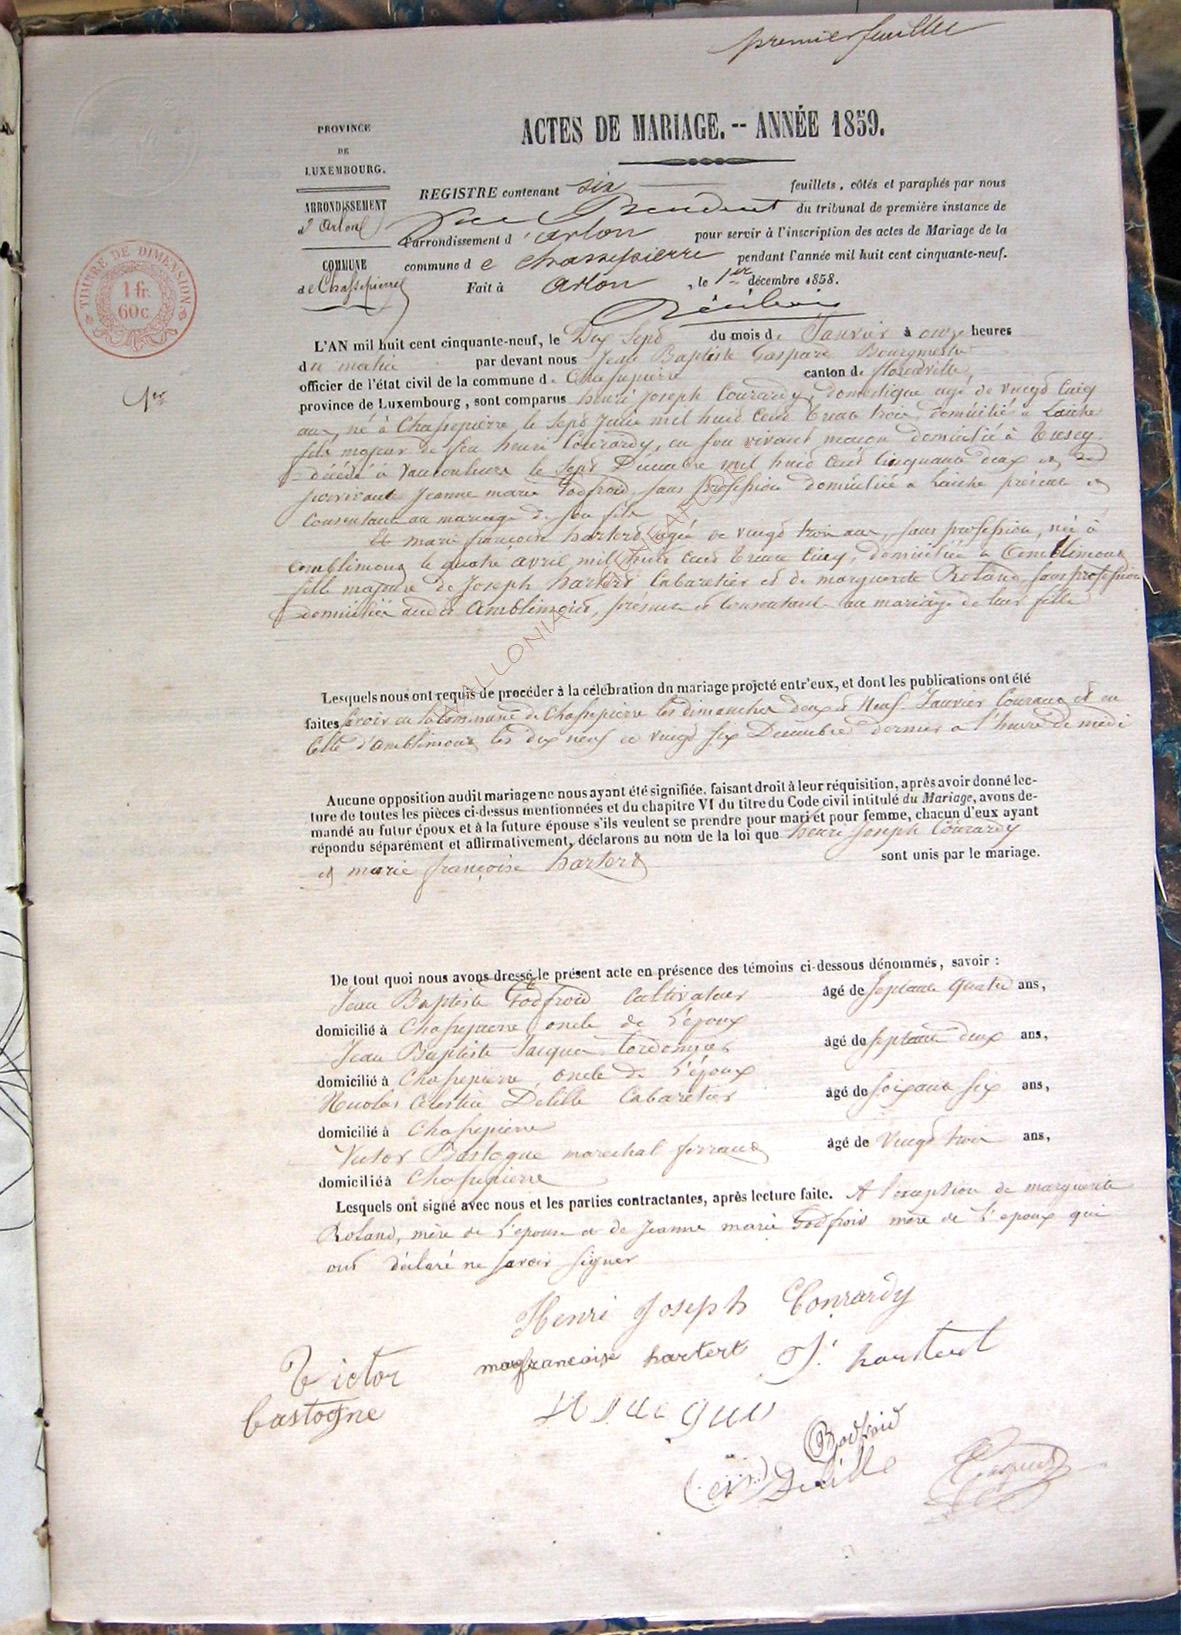 premier feuillet
ACTES DE MARIAGE. -- ANNÉE 1859.
PROVINCE
DE
LUXEMBOURG.
ARRONDISSEMENT
d'arlon
COMMUNE
de Chassepierre
TIMBRE DE DIMENSION
1 fr.
60 c.
REGISTRE contenant six feuillets, côtés et paraphés par nous
President du tribunal de première instance de
l'arrondissement d'arlon pour servir à l'inscription des actes de Mariage de la
commune de chassepierre pendant l'année mil huit cent cinquante-neuf.
Fait à arlon, le 1er décembre 1858.
1er
L'AN mil huit cent cinquante-neuf, le Dix Sept du mois de Janvier à onze heures
du matin par devant nous Jean Baptiste Gaspard Bourgmestre
officier de l'état civil de la commune de Chassepierre canton de florenville,
province de Luxembourg, sont comparus henri Joseph Conrardy, domestique agé de vingt cinq
ans, né à Chassepierre le sept Juin mil huit cent trente trois, domicilié à Laiche
fils majeur de feu henri Conrardy, en son vivant maçon domicilié à
décédé à vaucouleurs le sept Décembre mil huit cent cinquante deux et de
survivante Jeanne marie Godfroid, sans profession domiciliée a Laiche présente et
consentant au mariage de son fils
Et marie françoise hartert agée de vingt trois ans, sans profession, née à
amblimont le quatre avril mil huit cent trente cinq, domiciliée a amblimont
fille majeure de Joseph hartert Cabaretier et de marguerite Roland, sans profession
domiciliés audit amblimont, présents et consentant au mariage de leur fille
Lesquels nous ont requis de procéder à la célébration du mariage projeté entr'eux, et dont les publications ont été
faites savoir en la commune de Chassepierre les dimanches deux et Neuf Janvier Courant et en
celle d'amblimont les dix neuf et vingt six Decembre dernier a l'heure de midi
Aucune opposition audit mariage ne nous ayant été signifiée, faisant droit à leur réquisition, après avoir donné lec-
ture de toutes les pièces ci-dessus mentionnées et du chapitre VI du titre du Code civil intitulé du Mariage, avons de-
mandé au futur époux et à la future épouse s'ils veulent se prendre pour mari et pour femme, chacun d'eux ayant
répondu séparément et affirmativement, déclarons au nom de la loi que henri Joseph Conrardy
et marie françoise hartert sont unis par le mariage.
De tout quoi nous avons dressé le présent acte en présence des témoins ci-dessous dénommés, savoir :
Jean Baptiste Godfroid Cultivateur âgé de septante quatre ans,
domicilié à Chassepierre oncle de l'époux
Jean Baptiste Jacques Cordonnier âgé de septante deux ans,
domicilié à Chassepierre, oncle de l'époux
Nicolas Celestin Delille Cabaretier âgé de soixante six ans,
domicilié à Chassepierre
Victor Bastogne marechal ferrant âgé de vingt trois ans,
domicilié à Chassepierre
Lesquels ont signé avec nous et les parties contractantes, après lecture faite. A l'exception de marguerite
Roland, mère de l'épouse et de Jeanne marie Godfroid mère de l'époux qui
ont déclaré ne savoir signer
Henri Joseph Conrardy
françoise hartert J. hartert
Victor
bastogne
Godfroid
Delille
WALLONIA